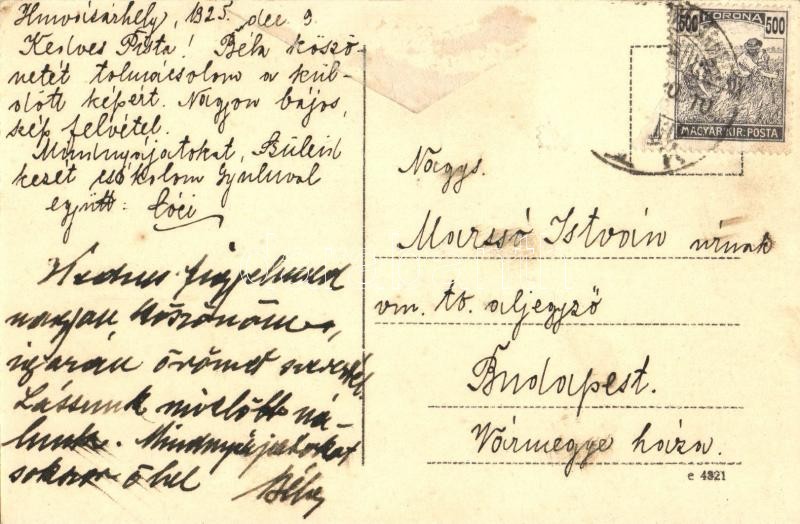 Hmvásárhely, 1925 dec 9
Kedves Pista! Béla köszö-
netét tolmácsolom a kül-
dött képért. Nagyon bájos,
szép felvétel.
Mindnyájatokat, Szüleid
kezét csókolom Gyulával
együtt: Cóci
Kedves figyelmed
nagyon köszönöm,
igazán örömet szereztél.
Lássunk mielőbb ná-
lunk. Mindnyájatokat
sokszor ölel
Béla
500 KORONA 500
MAGYAR KIR. POSTA
Nagys.
Marssó István úrnak
vm. tb. aljegyző
Budapest.
Vármegye háza.
e 4321